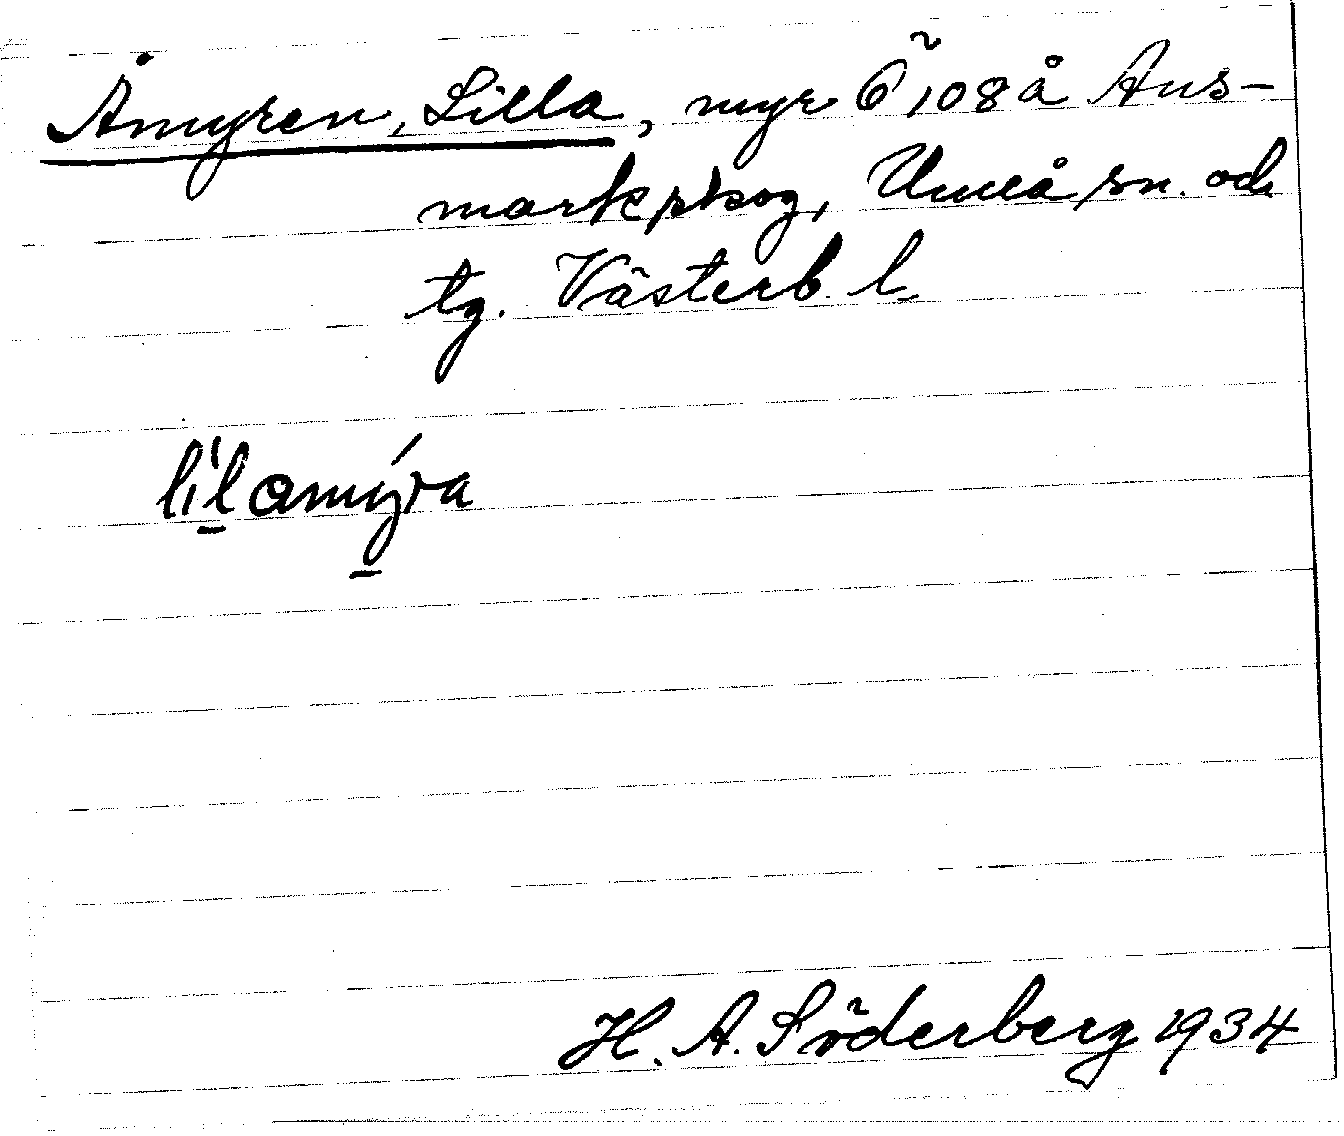 Åmyren, Lilla, myr Ö 108 å Ans-
markskog, Umeå sn. och
tg. Västerb. l.
lílamýra
H. A. Söderberg 1934